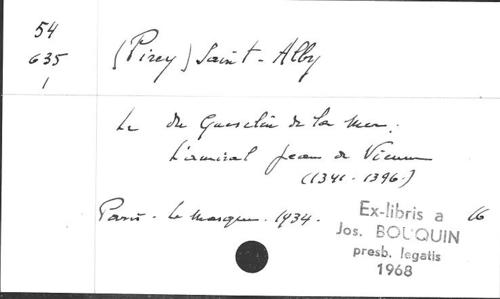 54
635
1
(Pirey) Saint-Alby
Le du Guesclin de la Mer.
L'amiral Jean de Vienne
(1341-1396.)
Paris - Le Masque. 1934. 16
Ex-libris a
Jos. BOUQUIN
presb. legatis
1968